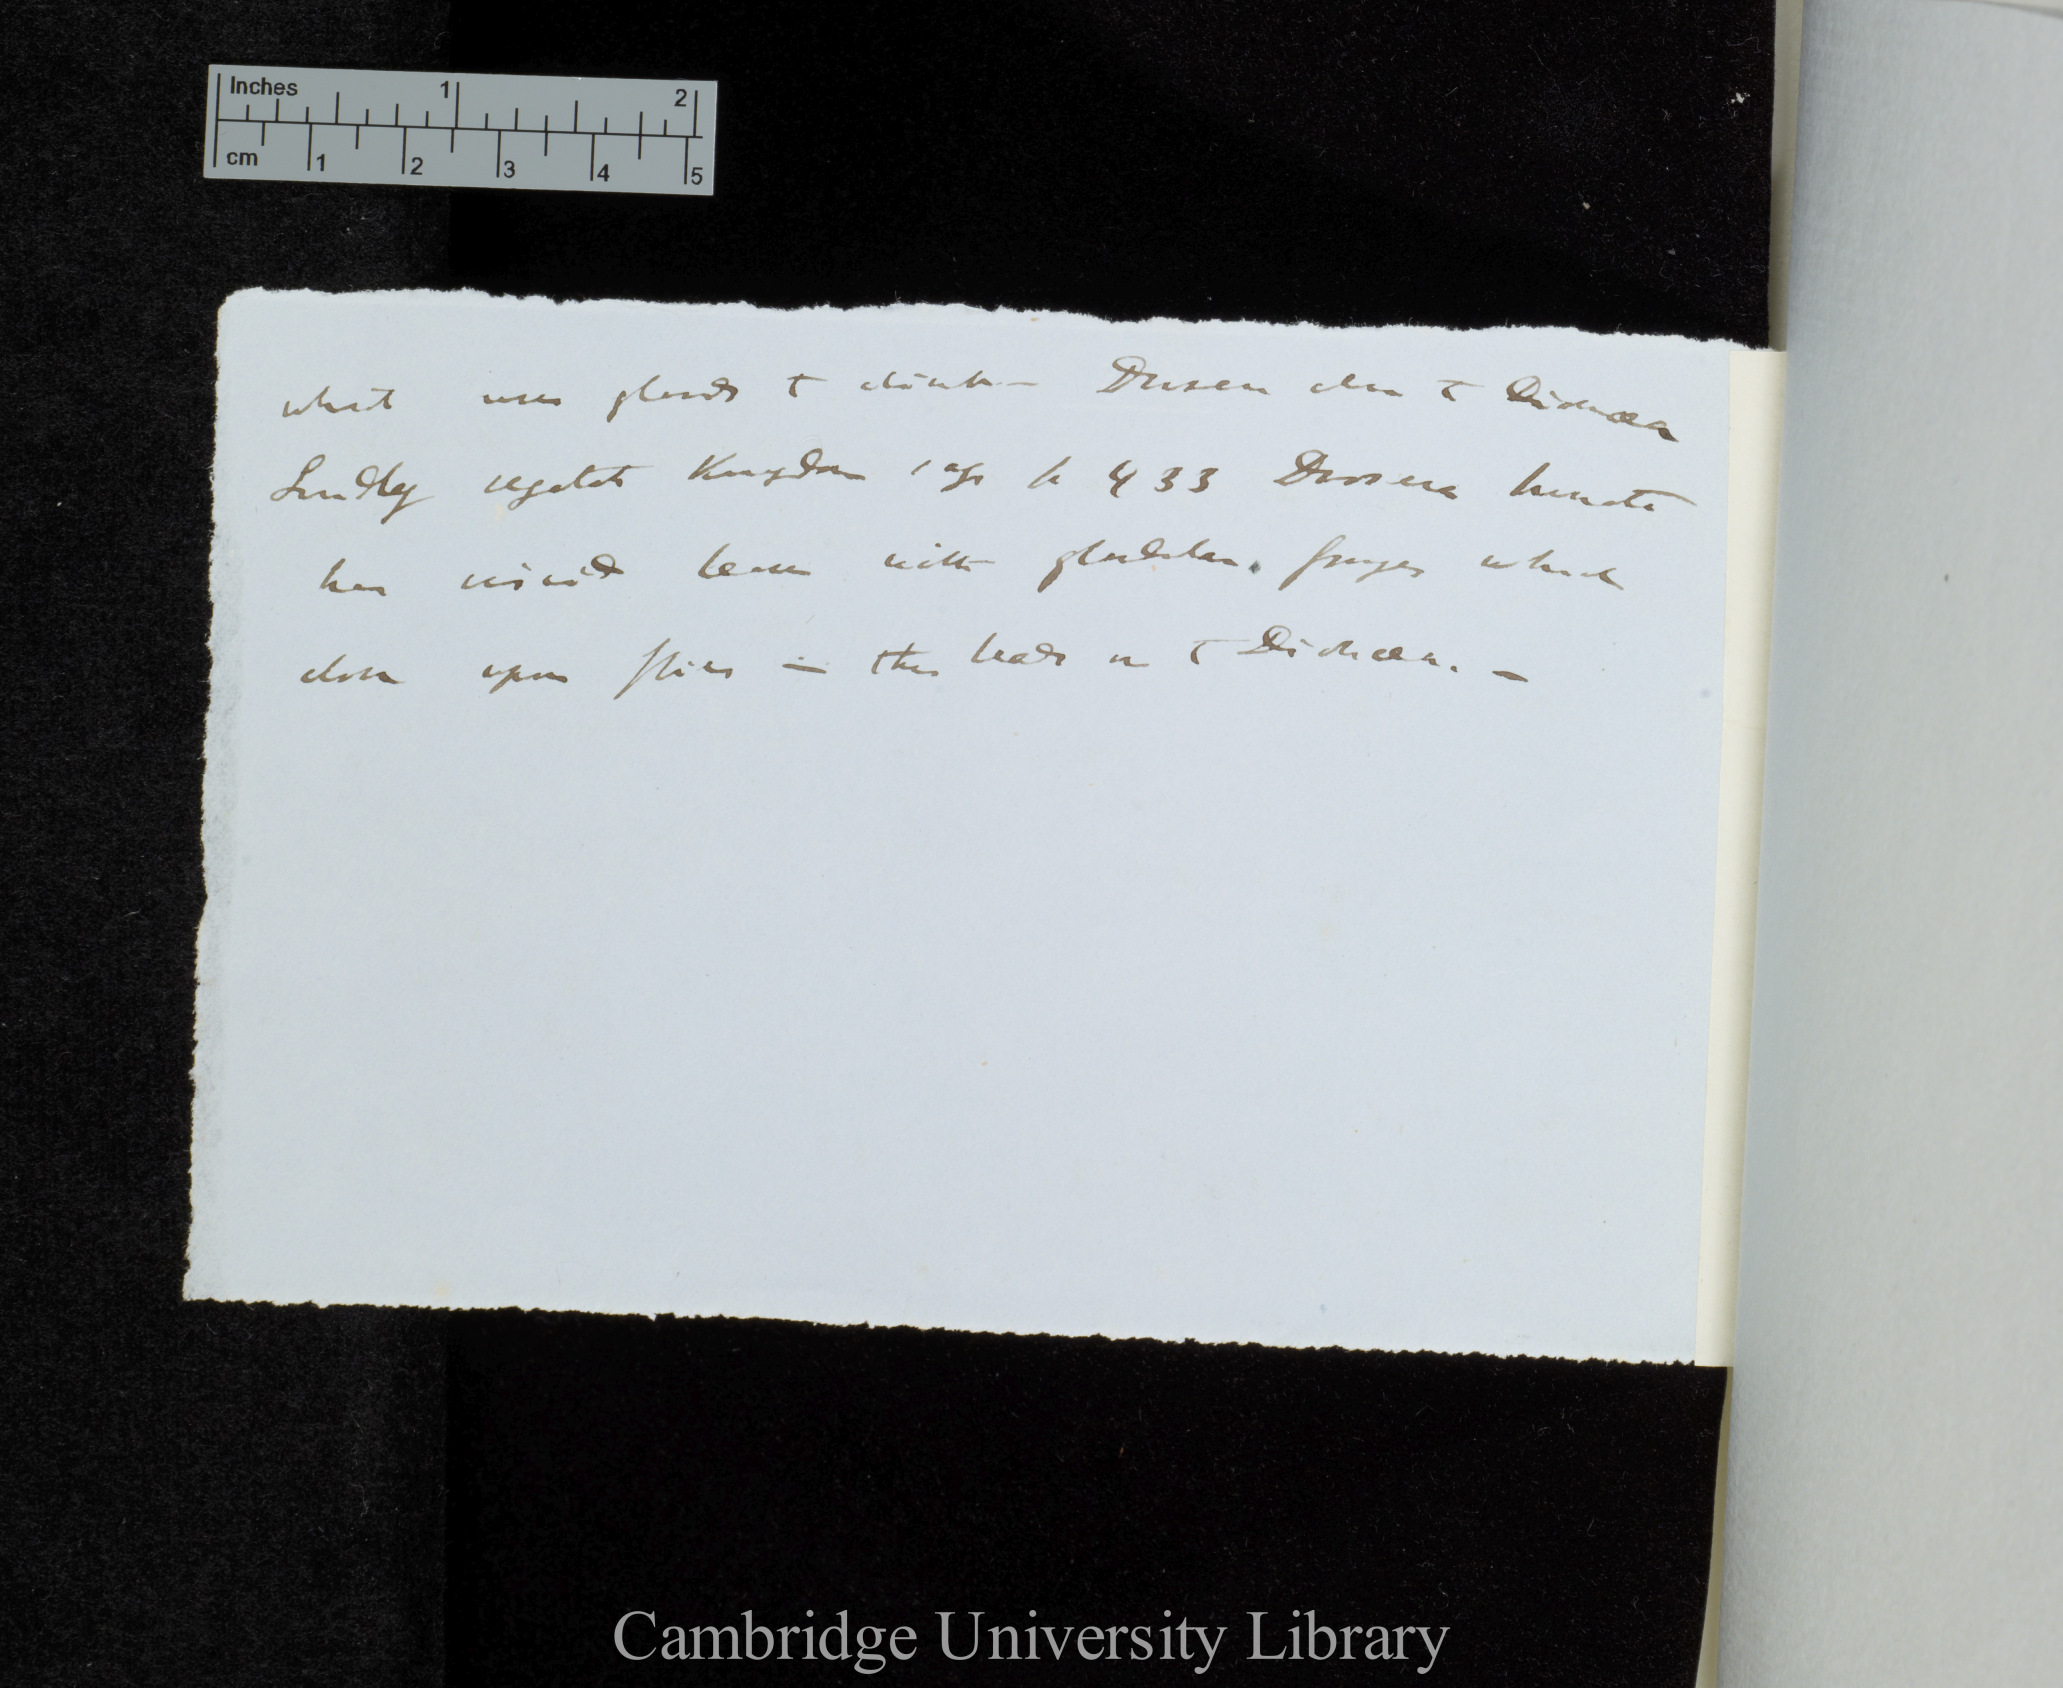 Inches 1 2
cm 1 2 3 4 5
what uses glands to Drosera close to Dionæa
Lindley Vegetable Kingdom says p 433 Drosera lunata
has viscid leaves with glandular fringes which
close upon flies — this leads on to Dionæa. —
Cambridge University Library